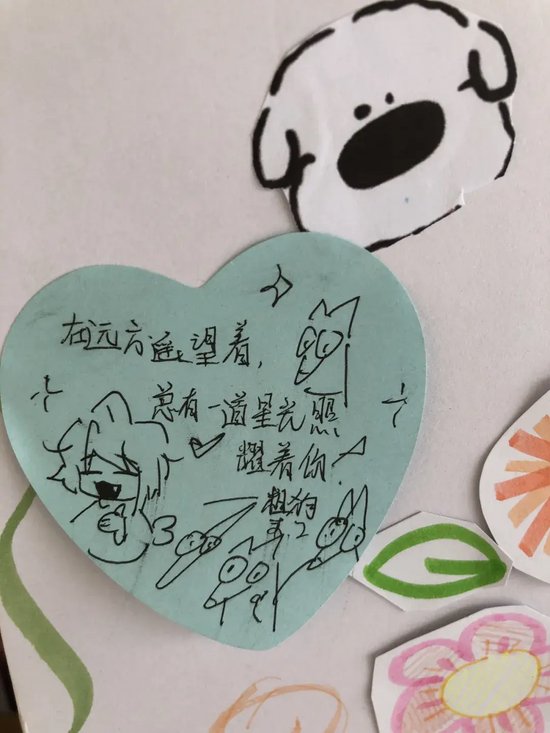 在远方遥望着，
总有一道星光照
耀着你！
粗狗